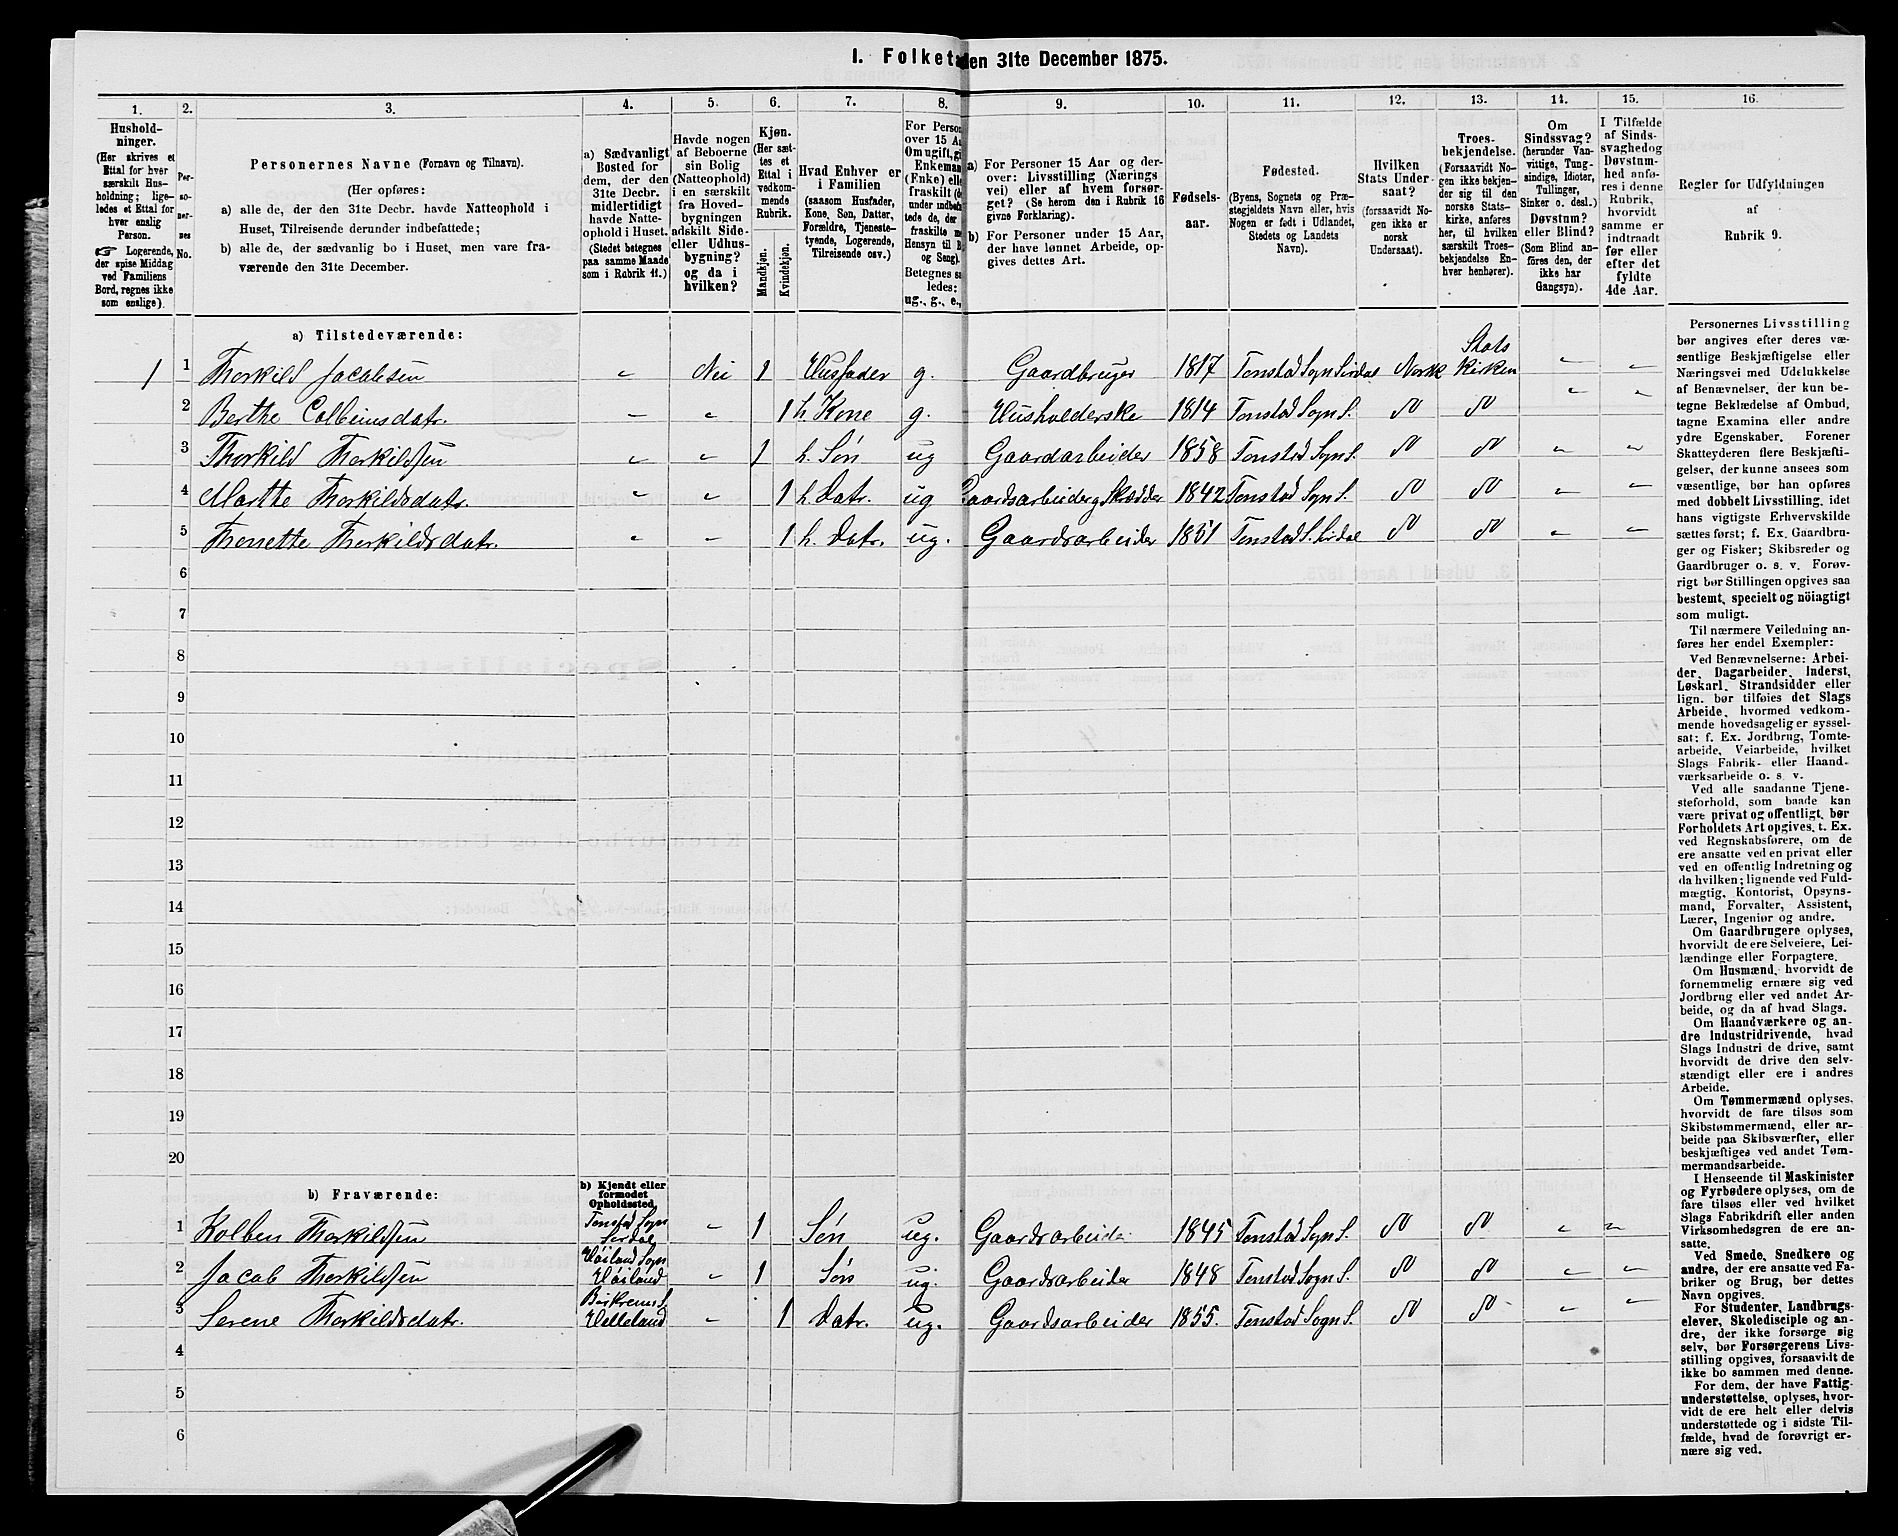 I. Folket
den 31te December 1875.
1. 2. 3. 4. 5. 6. 7. 8. 9. 10. 11. 12. 13. 14. 15. 16.
Hushold-
ninger.
(Her skrives et
Ettal for hver
særskilt Hus-
holdning; lige-
ledes et Ettal for
hver enslig
Person.
☞ Logerende,
der spise Middag
ved Familiens
Bord, regnes ikke
som enslige).
Per-
so-
ner-
nes
No.
Personernes Navne (Fornavn og Tilnavn).
(Her opføres:
a) alle de, der den 31te Decbr. havde Natteophold i
Huset, Tilreisende derunder indbefattede;
b) alle de, der sædvanlig bo i Huset, men vare fra-
værende den 31te December.
a) Sædvanligt
Bosted for
dem, der den
31te Decbr.
midlertidigt
havde Natte-
ophold i Huset.
(Stedet betegnes
paa samme Maade
som i Rubrik 11.)
Havde nogen
af Beboerne
sin Bolig
(Natteophold)
i en særskilt
fra Hoved-
bygningen
adskilt Side-
eller Udhus-
bygning?
og da i
hvilken?
Kjøn.
(Her sæt-
tes et
Ettal i
vedkom-
mende
Rubrik.
Mandkjøn.
Kvindekjøn.
Hvad Enhver er
i Familien
(saasom Husfader,
Kone, Søn, Datter,
Forældre, Tjeneste-
tyende, Logerende,
Tilreisende osv.)
For Person
over 15 A
Om ugift, gi
Enkeman
(Enke) elle
fraskilt (d
under indbe
tede de, der
fraskilte m
Hensyn til B
og Seng).
Betegnes sa
ledes:
ug., g., e.,
a) For Personer 15 Aar og der-
over: Livsstilling (Nærings
vei) eller af hvem forsør-
get? (Se herom den i Rubrik 16
givne Forklaring).
b) For Personer under 15 Aar,
der have lønnet Arbeide, op-
gives dettes Art.
Fødsels-
aar.
Fødested.
(Byens, Sognets og Præ-
stegjeldets Navn eller, hvis
Nogen er født i Udlandet,
Stedets og Landets
Navn).
Hvilken
Stats Under-
saat?
(forsaavidt No-
gen ikke er
norsk
Undersaat).
Troes-
bekjendelse.
(Forsaavidt No-
gen ikke bekjen-
der sig til den
norske Stats-
kirke, anføres
her, til hvilken
særskilt Troes-
bekjendelse En-
hver henhører).
Om
Sindssvag?
(herunder Van-
vittige, Tung-
sindige, Idioter,
Tullinger,
Sinker o. desl.)
Døvstum?
eller Blind?
(Som Blind an-
føres den, der
ikke har
Gangsyn).
I Tilfælde
af Sinds-
svaghed og
Døvstum-
hed anfø-
res i denne
Rubrik,
hvorvidt
samme er
indtraadt
før eller
efter det
fyldte
4de Aar.
Regler for Udfyldningen
af
Rubrik 9.
a) Tilstedeværende:
1 1 Thorkild Jacobsen „ Nei 1 Husfader g. Gaardbruger 1817 Tonstad Sogn Sirdal Norsk Stats Kirken „ „
2 Berthe Colbeinsdatr. „ „ 1 h. Kone g. Husholderske 1814 Tonstad Sogn S. do do „ „
3 Thorkild Thorkildsen „ „ 1 h. Søn ug Gaardarbeider 1858 Tonstad Sogn S. do do „ „
4 Marthe Thorkildsdatr. „ „ 1 h. Datr. ug Gaardsarbeider og Skrædder 1842 Tonstad Sogn S. do do „ „
5 Thonette Thorkildsdatr. „ „ 1 h. Datr. ug. Gaardsarbeider 1851 Tonstad S. Sirdal do do „ „
6
7
8
9
10
11
12
13
14
15
16
17
18
19
20
b) Fraværende:
b) Kjendt eller
formodet
Opholdssted,
1 Kolben Thorkildsen Tonstad Sogn Serdal „ 1 Søn ug. Gaardsarbeider 1845 Tonstad Sogn S. do do „ „
2 Jacob Thorkildsen Høiland Sogn Høiland „ 1 Søn ug. Gaardsarbeider 1848 Tonstad Sogn S. do do „ „
3 Serene Thorkildsdatr. Birkrem S. Helleland „ 1 Datr. ug. Gaardsarbeider 1855. Tonstad Sogn S. do do „ „
4
5
6
Personernes Livsstilling
bør angives efter deres væ-
sentlige Beskjæftigelse eller
Næringsvei med Udelukkelse
af Benævnelser, der kun be-
tegne Beklædelse af Ombud,
tagne Examina eller andre
ydre Egenskaber. Forener
Skatteyderen flere Beskjæfti-
gelser, der kunne ansees som
væsentlige, bør han opføres
med dobbelt Livsstilling, idet
hans vigtigste Erhvervskilde
sættes først; f. Ex. Gaardbru-
ger og Fisker; Skibsreder og
Gaardbruger o. s. v. Forøv-
rigt bør Stillingen opgives saa
bestemt, specielt og nöiagtigt
som muligt.
Til nærmere Veiledning an-
føres her endel Exempler:
Ved Benævnelserne: Arbei-
der, Dagarbeider, Inderst,
Løskarl, Strandsidder eller
lign. bør tilføies det Slags
Arbeide, hvormed vedkom-
mende hovedsagelig er syssel-
sat; f. Ex. Jordbrug, Tomte-
arbeide, Veiarbeide, hvilket
Slags Fabrik- eller Haand-
værksarbeide o. s. v.
Ved alle saadanne Tjene-
steforhold, som baade kan
være privat og offentligt, bør
Forholdets Art opgives, t. Ex.
ved Regnskabsførere, om de
ere ansatte ved en privat eller
ved en offentlig Indretning og
da hvilken; lignende ved Fuld-
mægtig, Kontorist, Opsyns-
mand, Forvalter, Assistent,
Lærer, Ingeniør og andre.
Om Gaardbrugere oplyses,
hvorvidt de ere Selveiere, Lei-
lændinge eller Forpagtere.
Om Husmænd, hvorvidt de
fornemmelig ernære sig ved
Jordbrug eller ved andet Ar-
beide, og da af hvad Slags.
Om Haandværkere og an-
dre Industridrivende, hvad
Slags Industri de drive, samt
hvorvidt de drive den selv-
stændigt eller ere i andres
Arbeide.
Om Tømmermænd oplyses,
hvorvidt de fare tilsøs som
Skibstømmermænd, eller ar-
beide paa Skibsværfter, eller
beskjæftiges ved andet Tøm-
mermandsarbeide.
I Henseende til Maskinister
og Fyrbødere oplyses, om de
fare tilsøs eller ved hvilket
Slags Fabrikdrift eller anden
Virksomhedsgren de ere an-
satte.
Ved Smede, Snedkere og
andre, der ere ansatte ved Fa-
briker og Brug, bør dettes
Navn opgives.
For Studenter, Landbrugs-
elever, Skoledisciple og an-
dre, der ikke forsørge sig
selv, bør Forsørgerens Livs-
stilling opgives, forsaavidt de
ikke bo sammen med denne.
For dem, der have Fattig-
understøttelse, oplyses, hvor-
vidt de ere helt eller delvis
understøttede og i sidste Til-
fælde, hvad de forøvrigt er-
nære sig ved.